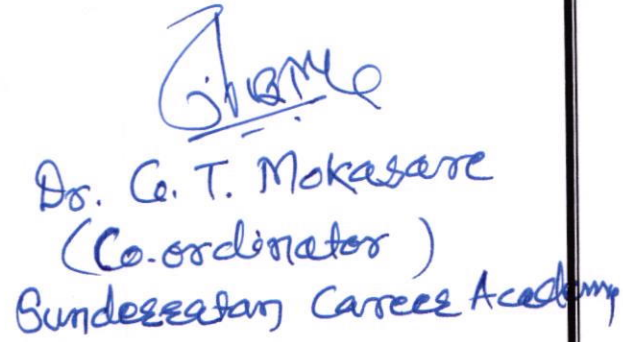 Dr. G. T. Mokasare
(Co-ordinator)
Sunderratan Career Academy